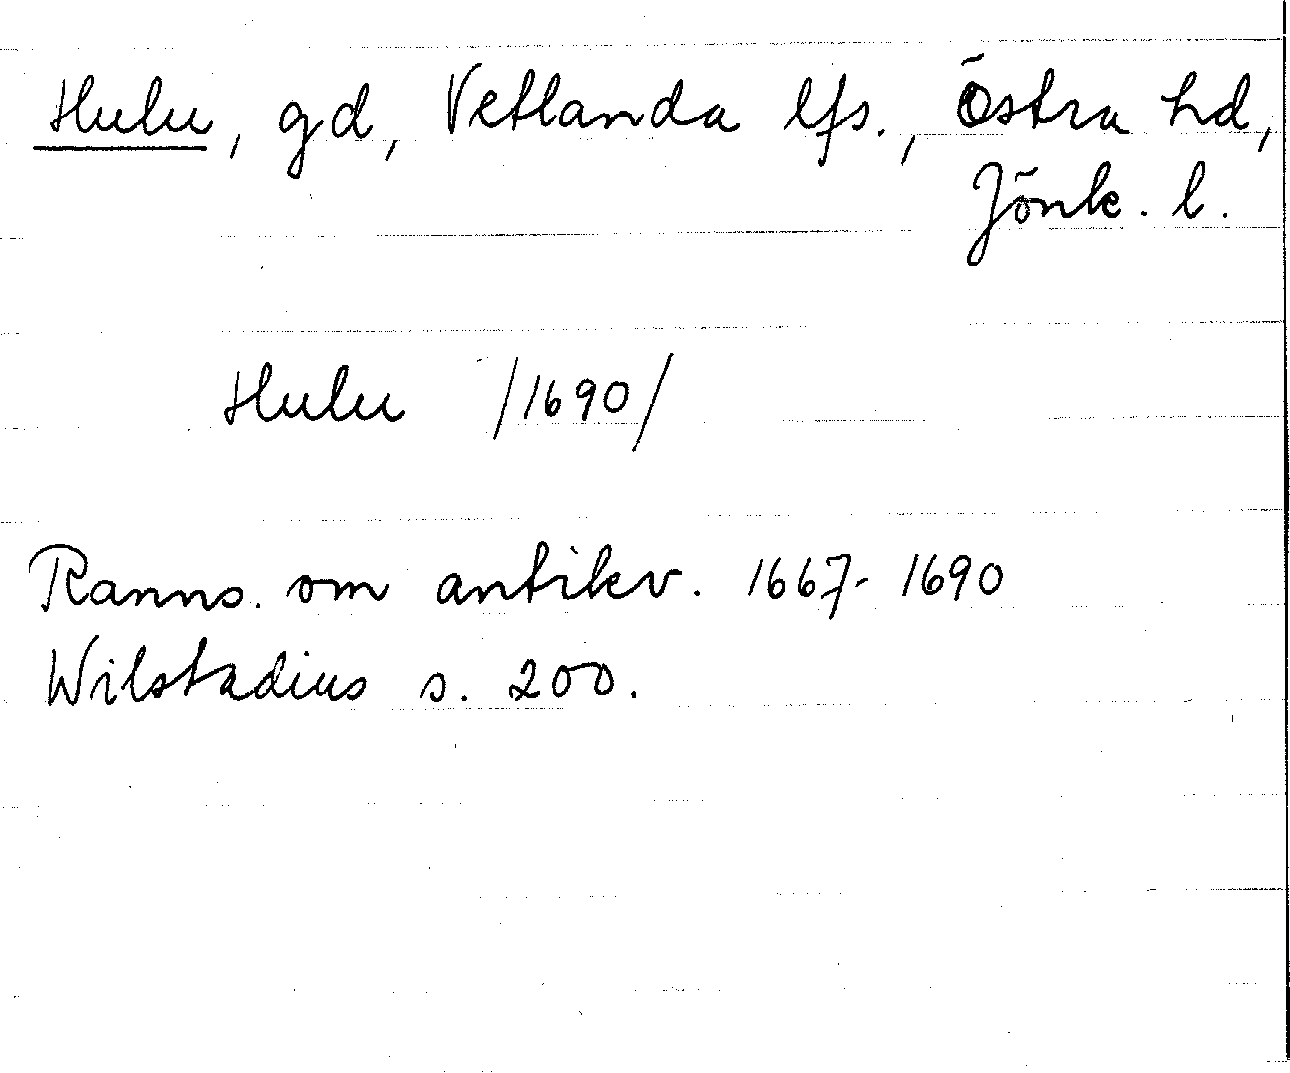 Hulu, gd, Vetlanda lfs., Östra hd,
Jönk. l.
Hulu /1690/
Ranns. om antikv. 1667-1690
Wilstadius s. 200.